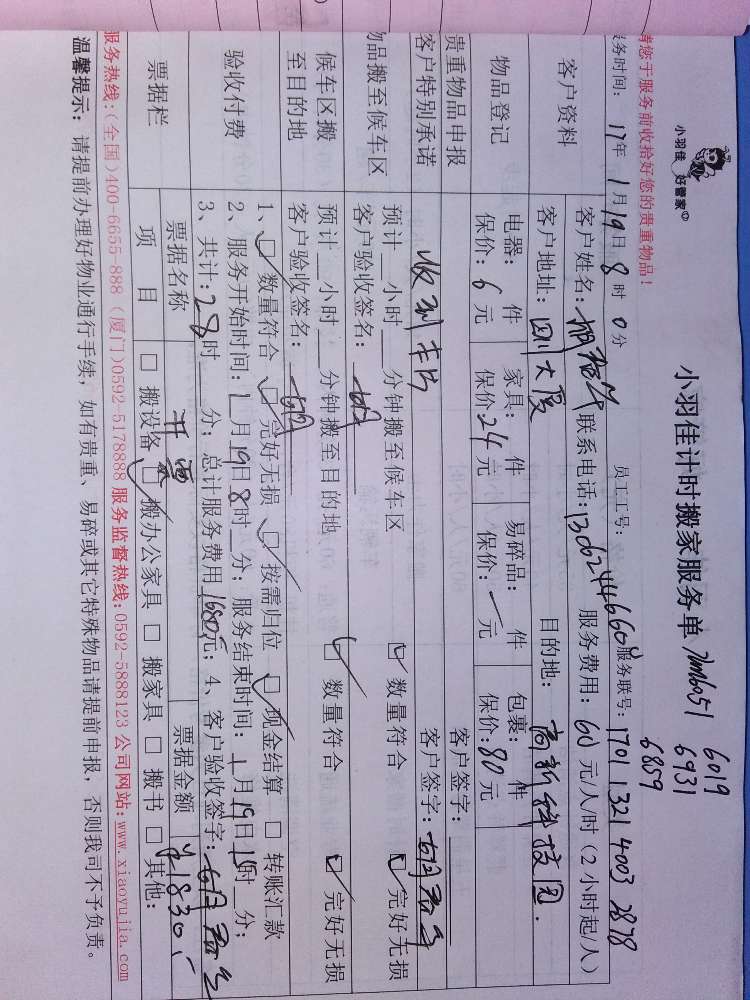 小羽佳 好管家
小羽佳计时搬家服务单
6019
6931
6859
请您于服务前收拾好您的贵重物品!
服务时间: 17年 1月19日 8时 0分 员工工号: 服务联号: 1701 1321 4003 2878
客户资料
客户姓名: 联系电话: 13062446660 服务费用: 60元/人/时(2小时起/人)
客户地址: 四川大厦 目的地: 高新科技园.
物品登记
电器: 件 家具: 件 易碎品: 件 包裹: 件
保价: 6元 保价: 24元 保价: 一元 保价: 80元
贵重物品申报 客户签字:
客户特别承诺 客户签字:
物品搬至候车区
预计__小时__分钟搬至候车区 数量符合 完好无损
客户验收签名:
候车区搬至目的地
预计__小时__分钟搬至目的地 数量符合 完好无损
客户验收签名:
验收付费
1、 数量符合 完好无损 按需归位 现金结算 转账汇款
2、服务开始时间: 1月19日8时__分; 服务结束时间: 1月19日15时__分;
3、共计: 28时__分; 总计服务费用1680元; 4、客户验收签字:
票据栏
票据名称 开票 票据金额 ¥1830.-
项目 搬设备 搬办公家具 搬家具 搬书 其他:
服务热线:(全国)400-6655-888 (厦门)0592-5178888 服务监督热线:0592-5888123 公司网站:www.xiaoyujia.com
温馨提示: 请提前办理好物业通行手续, 如有贵重、易碎或其它特殊物品请提前申报, 否则我司不予负责。